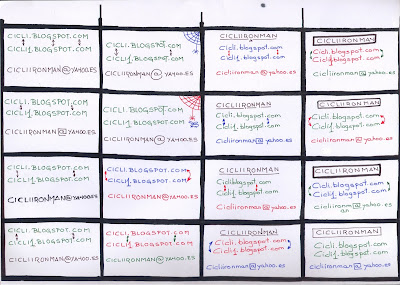 CICLI.BLOGSPOT.COM
CICLI1.BLOGSPOT.COM
CICLIIRONMAN@YAHOO.ES
CICLI.BLOGSPOT.COM
CICLI1.BLOGSPOT.COM
CICLIIRONMAN@YAHOO.ES
CICLIIRONMAN
Cicli.blogspot.com
Cicli1.blogspot.com
Cicliironman@yahoo.es
CICLIIRONMAN
Cicli.blogspot.com
Cicli1.blogspot.com
Cicliironman@yahoo.es
CICLI.BLOGSPOT.COM
CICLI1.BLOGSPOT.COM
CICLIIRONMAN@YAHOO.ES
CICLI.BLOGSPOT.COM
CICLI1.BLOGSPOT.COM
CICLIIRONMAN@YAHOO.ES
CICLIIRONMAN
Cicli.blogspot.com
Cicli1.blogspot.com
Cicliironman@yahoo.es
CICLIIRONMAN
Cicli.blogspot.com
Cicli1.blogspot.com
Cicliironman@yahoo.es
CICLI.BLOGSPOT.COM
CICLI1.BLOGSPOT.COM
CICLIIRONMAN@YAHOO.ES
CICLI.BLOGSPOT.COM
CICLI1.BLOGSPOT.COM
CICLIIRONMAN@YAHOO.ES
CICLIIRONMAN
Cicli.blogspot.com
Cicli1.blogspot.com
Cicliironman@yahoo.es
CICLIIRONMAN
Cicli.blogspot.com
Cicli1.blogspot.com
Cicliironman@yahoo.es
CICLI.BLOGSPOT.COM
CICLI1.BLOGSPOT.COM
CICLIIRONMAN@YAHOO.ES
CICLI.BLOGSPOT.COM
CICLI1.BLOGSPOT.COM
CICLIIRONMAN@YAHOO.ES
CICLIIRONMAN
Cicli.blogspot.com
Cicli1.blogspot.com
Cicliironman@yahoo.es
CICLIIRONMAN
Cicli.blogspot.com
Cicli1.blogspot.com
Cicliironman@yahoo.es